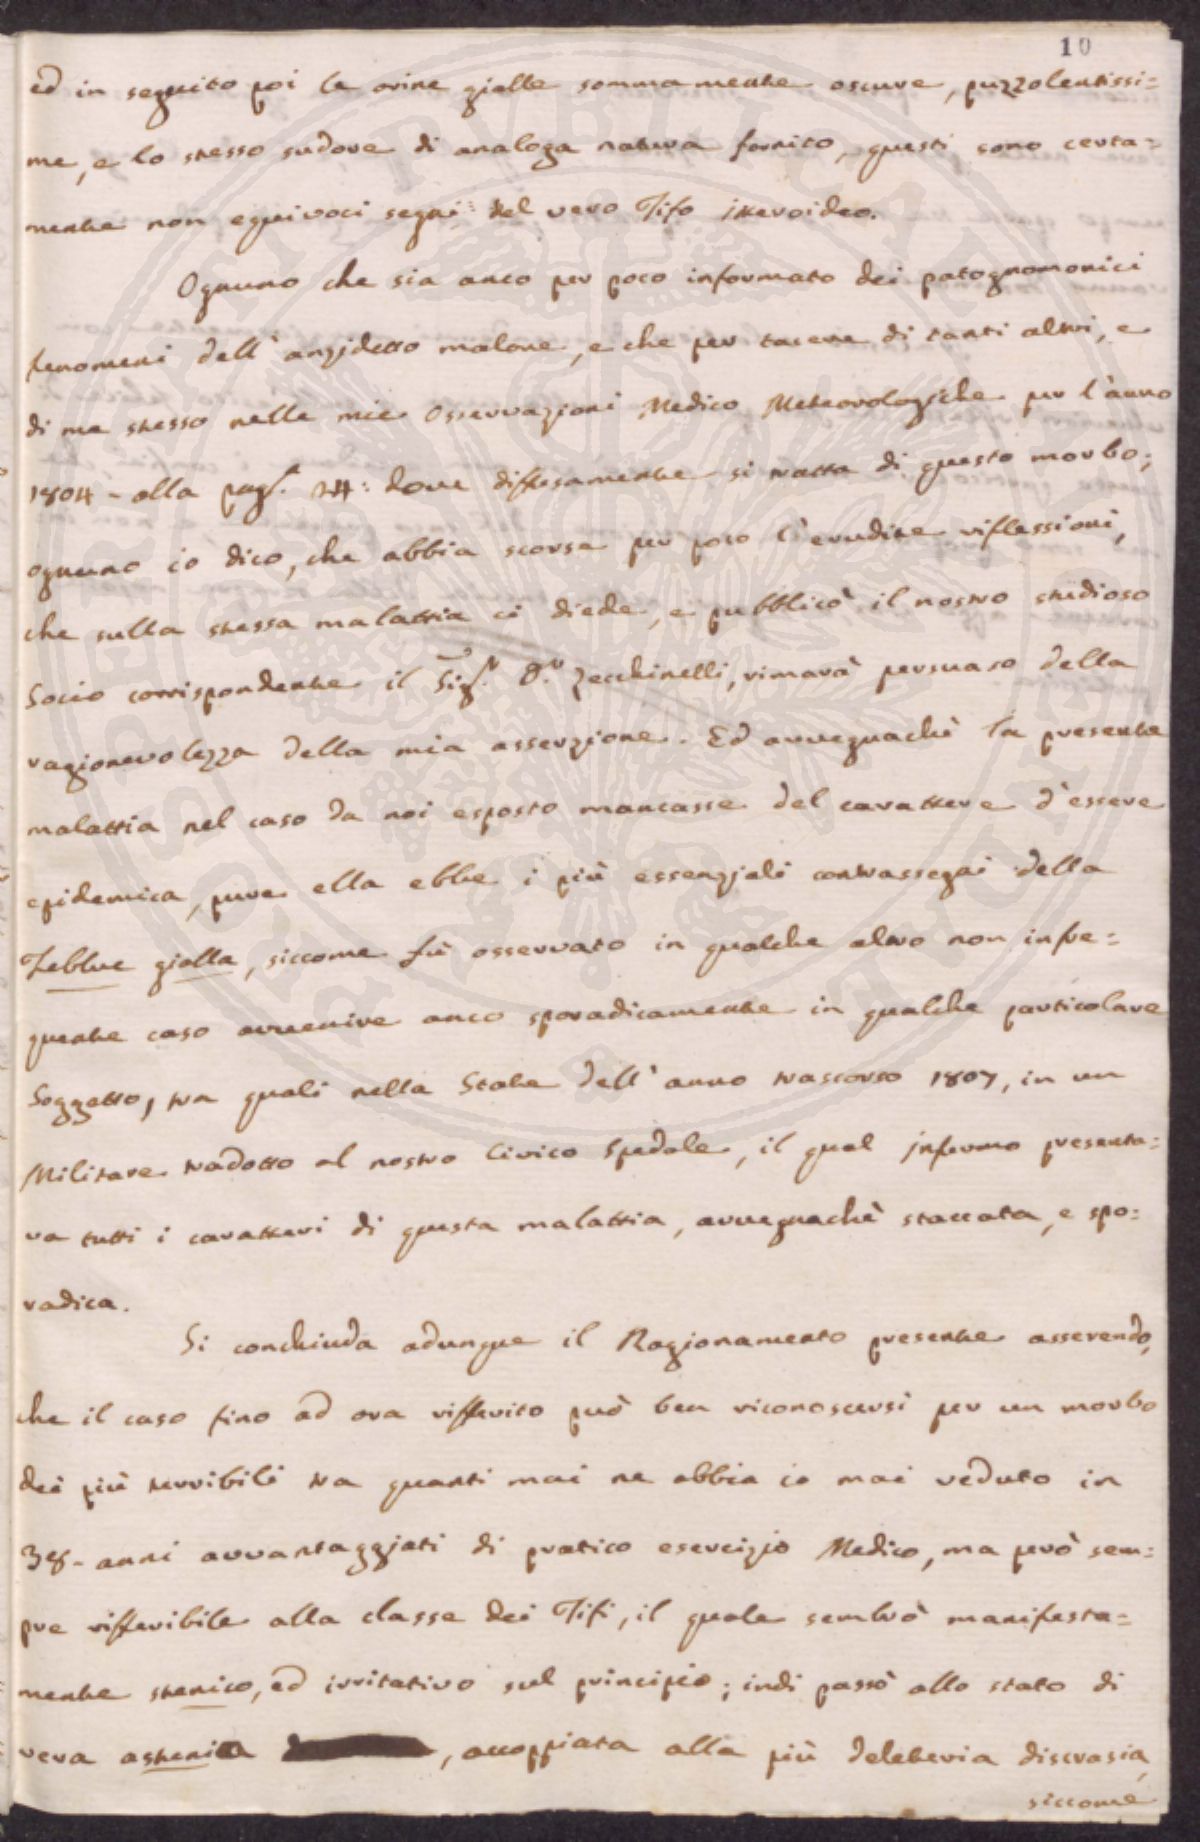 10
ed in seguito poi le orine gialle sommamente oscure, puzzolentissi=
me, e lo stesso sudore di analoga natura fornito, questi sono certa=
mente non equivoci segni del vero Tifo itteroideo.
Ognuno che sia anco per poco informato dei patognomonici
fenomeni dell'anzidetto malore, e che per tacere di tanti altri, e
di me stesso nelle mie Osservazioni Medico Meteorologiche per l'anno
1804 - alla pag. 24: dove diffusamente si tratta di questo morbo;
ognuno io dico, che abbia scorse per poco l'erudite riflessioni,
che sulla stessa malattia ci diede, e pubblicò il nostro studioso
Socio corrispondente il Sig.r D.r Zecchinelli, rimarà persuaso della
ragionevolezza della mia asserzione. Ed avvegnachè la presente
malattia nel caso da noi esposto mancasse del carattere d'essere
epidemica, pure ella ebbe i più essenziali contrassegni della
Febbre gialla, siccome fù osservato in qualche altro non infre=
quente caso avvenire anco sporadicamente in qualche particolare
Soggetto, tra quali nella State dell'anno trascorso 1807, in un
Militare tradotto al nostro Civico Spedale, il qual infermo presenta=
va tutti i caratteri di questa malattia, avvegnachè staccata, e spo=
radica.
Si conchiuda adunque il Ragionamento presente asserendo,
che il caso fino ad ora rifferito può ben riconoscersi per un morbo
dei più terribili tra quanti mai ne abbia io mai veduto in
38- anni avvantaggiati di pratico esercizio Medico, ma però sem=
pre rifferibile alla classe dei Tifi, il quale sembrò manifesta=
mente stenico, ed irritativo sul principio; indi passò allo stato di
vera astenia , accoppiata alla più deleteria discrasia,
siccome